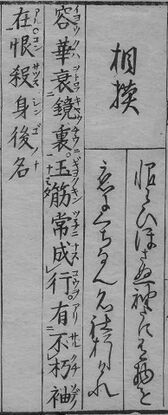 相摸
恨わひほさぬ袖たにある物を
恋にくちなん名社おしけれ
容華衰鏡裏玉筋常成行有不朽袖
在恨殺身後名